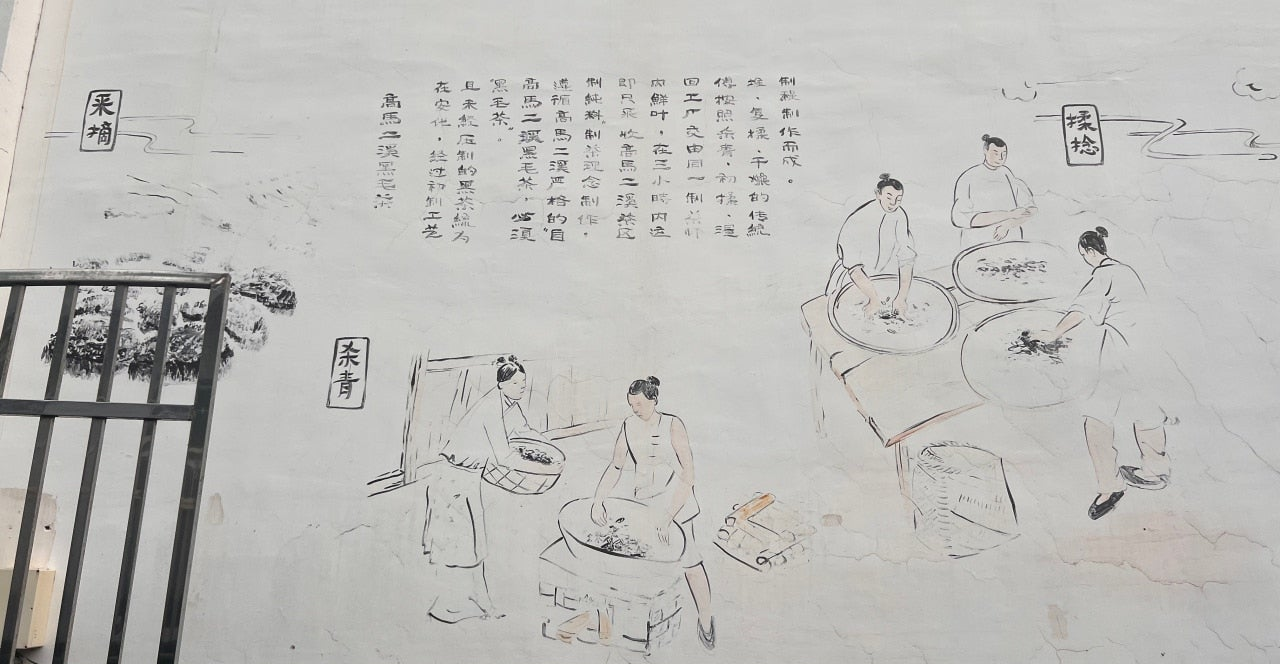 采摘
高馬二溪黑毛茶
在安化，经过初制工艺
且未经压制的黑茶統为
黑毛茶。
高馬二溪黑毛茶，必須
遵循高馬二溪严格的“自
制純料”制茶理念制作。
即只采收高馬二溪茶区
内鮮叶，在三小時内运
回工厂交由同一制茶师
傅按照杀青、初揉、渥
堆、复揉、干燥的传統
制程制作而成。
杀青
揉捻